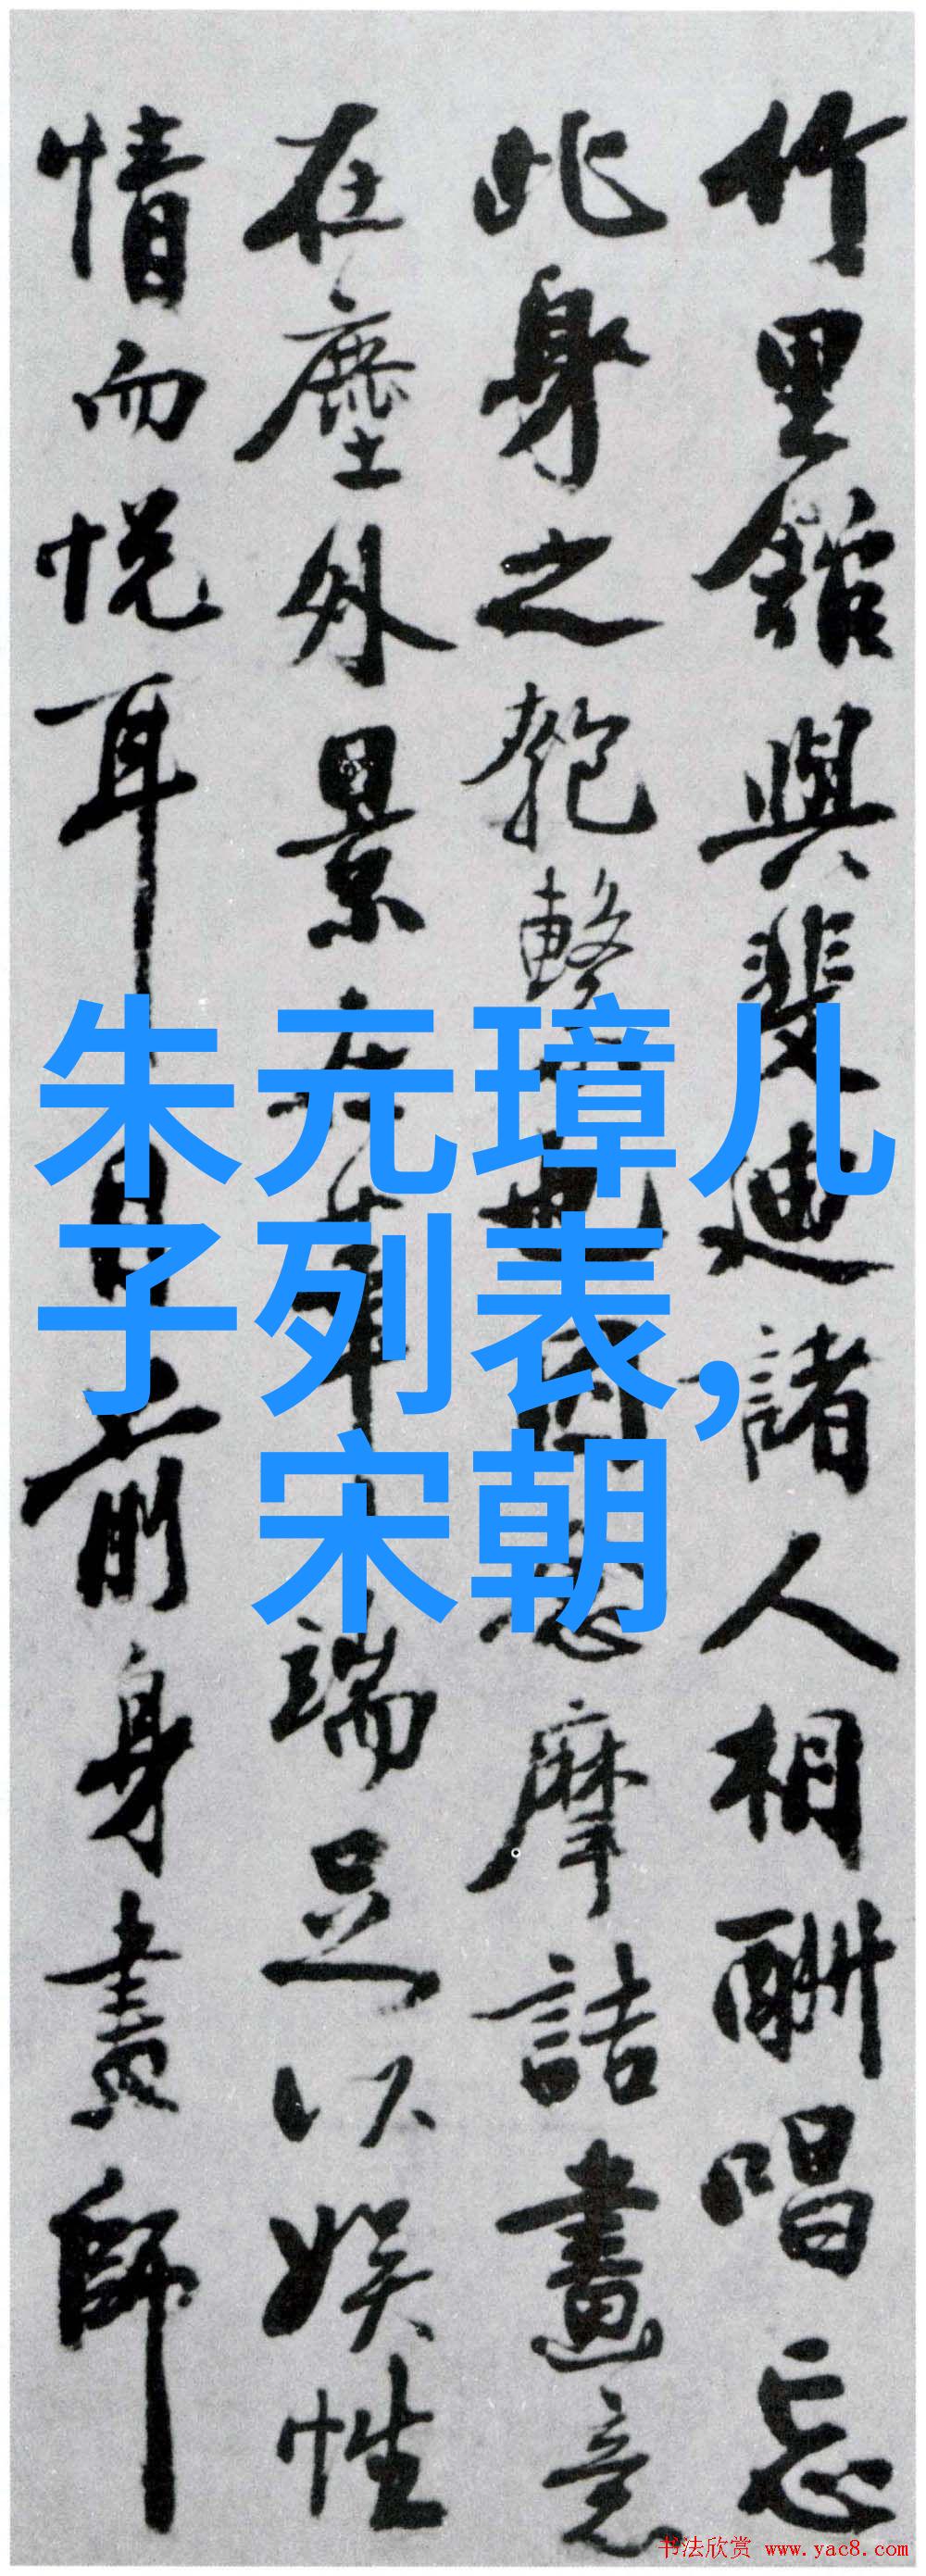 竹里館與斐迪諸人相酬唱忘
此身之匏繫也因摩詰畫意
在塵外景在筆端足以娛性
情而悅耳目前身畫師
朱元璋儿
子列表,
宋朝
书法欣赏 www.yac8.com